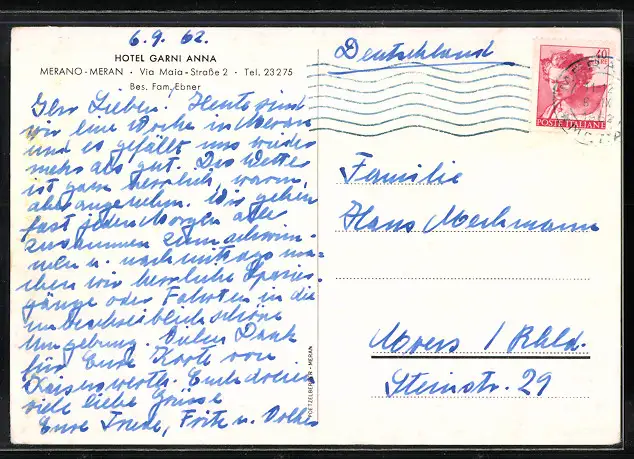 6.9.62.
HOTEL GARNI ANNA
MERANO-MERAN · Via Maia-Straße 2 · Tel. 23275
Bes. Fam. Ebner
Ihr Lieben! Heute sind
wir eine Woche in Meran
und es gefällt uns wieder
mehr als gut. Das Wetter
ist ganz herrlich, warm,
aber angenehm. Wir gehen
fast jeden Morgen alle
zusammen zum schwim-
men u. nachmittags ma-
chen wir herrliche Spazier-
gänge oder Fahrten in die
unbeschreiblich schöne
Umgebung. Vielen Dank
für Eure Karte von
Kaiserswerth. Euch dreien
viele liebe Grüsse
Eure Trude, Fritz u. Volker
POETZELBERGER - MERAN
Deutschland
40
LIRE
POSTE ITALIANE
Familie
Hans Meckmann
Moers / Rhld.
Steinstr. 29